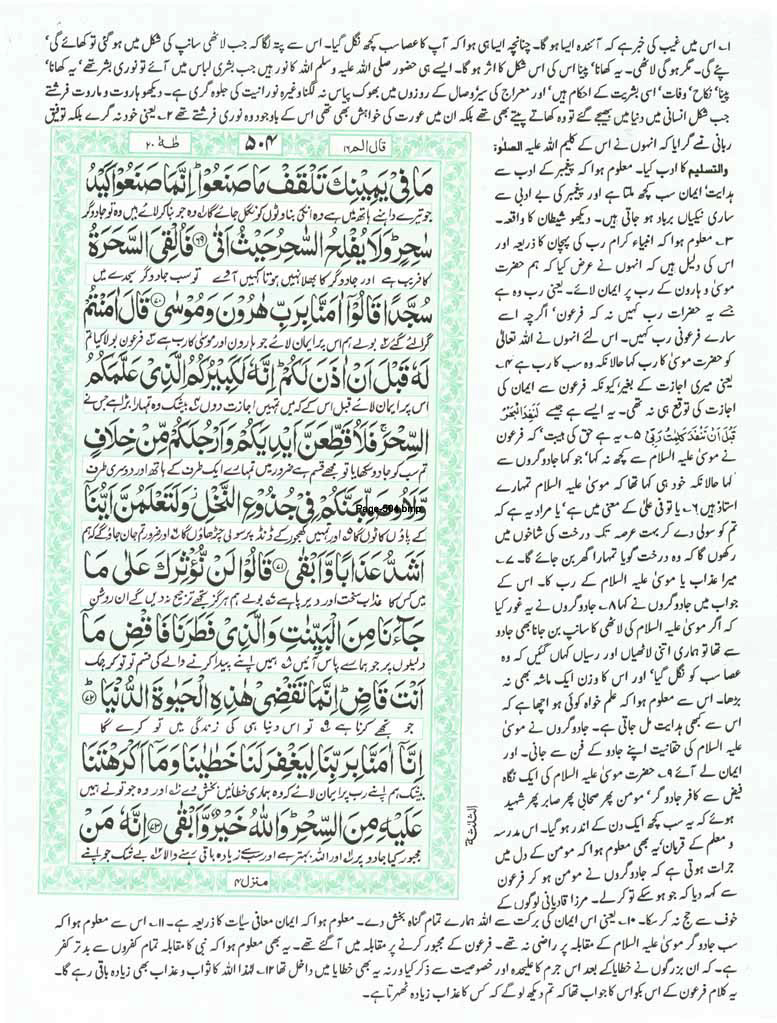 ۱؎ اس میں غیب کی خبر ہے کہ آئندہ ایسا ہو گا۔ چنانچہ ایسا ہی ہوا کہ آپ کا عصا سب کچھ نگل گیا۔ اس سے پتہ لگا کہ جب لاٹھی سانپ کی شکل میں ہو گئی تو کھائے گی'
پئے گی۔ مگر ہو گی لاٹھی۔ یہ کھانا' پینا اس کی اس شکل کا اثر ہو گا۔ ایسے ہی حضور صلی اللہ علیہ وسلم اللہ کا نور ہیں جب بشری لباس میں آئے تو نوری بشر تھے' یہ کھانا'
پینا' نکاح' وفات' اسی بشریت کے احکام ہیں' اور معراج کی سیر و وصال کے روزوں میں بھوک پیاس نہ لگنا وغیرہ نورانیت کی جلوہ گری ہے۔ دیکھو ہاروت و ماروت فرشتے
جب شکل انسانی میں دنیا میں بھیجے گئے تو وہ کھاتے پیتے بھی تھے بلکہ ان میں عورت کی خواہش بھی تھی اس کے باوجود وہ نوری فرشتے تھے ۲؎ یعنی خود نہ گرے بلکہ توفیق
قال الم ۱۶
۵۰۴
طٰهٰ ۲۰
مَا فِيْ يَمِيْنِكَ تَلْقَفْ مَا صَنَعُوْا ؕ اِنَّمَا صَنَعُوْا كَيْدُ
جو تیرے داہنے ہاتھ میں ہے وہ انکی بناوٹوں کو نگل جائے گا وہ جو بنا کر لائے ہیں وہ تو جادوگر
سٰحِرٍ ؕ وَلَا يُفْلِحُ السَّاحِرُ حَيْثُ اَتٰى ۶۹ فَاُلْقِيَ السَّحَرَةُ
کا فریب ہے اور جادوگر کا بھلا نہیں ہوتا کہیں آوے تو سب جادوگر سجدے میں
سُجَّدًا قَالُوْۤا اٰمَنَّا بِرَبِّ هٰرُوْنَ وَمُوْسٰى ۷۰ قَالَ اٰمَنْتُمْ
گرا لئے گئے بولے ہم اس پر ایمان لائے جو ہارون اور موسیٰ کا رب ہے فرعون بولا کیا تم
لَهٗ قَبْلَ اَنْ اٰذَنَ لَكُمْ ؕ اِنَّهٗ لَكَبِيْرُكُمُ الَّذِيْ عَلَّمَكُمُ
اس پر ایمان لائے قبل اس کے کہ میں تمہیں اجازت دوں بیشک وہ تمہارا بڑا ہے جس نے
السِّحْرَ ۚ فَلَاُقَطِّعَنَّ اَيْدِيَكُمْ وَاَرْجُلَكُمْ مِّنْ خِلَافٍ
تم سب کو جادو سکھایا تو مجھے قسم ہے ضرور میں تمہارے ایک طرف کے ہاتھ اور دوسری طرف
وَّلَاُوصَلِّبَنَّكُمْ فِيْ جُذُوْعِ النَّخْلِ ۫ وَلَتَعْلَمُنَّ اَيُّنَاۤ
Page-504.bmp
کے پاؤں کاٹوں گا اور تمہیں کھجور کے ڈنڈ پر سولی چڑھاؤں گا اور ضرور تم جان جاؤ گے کہ ہم
اَشَدُّ عَذَابًا وَّاَبْقٰى ۷۱ قَالُوْا لَنْ نُّؤْثِرَكَ عَلٰى مَا
میں کس کا عذاب سخت اور دیرپا ہے بولے ہم ہرگز تجھے ترجیح نہ دیں گے ان روشن
جَآءَنَا مِنَ الْبَيِّنٰتِ وَالَّذِيْ فَطَرَنَا فَاقْضِ مَاۤ
دلیلوں پر جو ہمارے پاس آئیں ہمیں اپنے پیدا کرنے والے کی قسم تو تو کر چک
اَنْتَ قَاضٍ ؕ اِنَّمَا تَقْضِيْ هٰذِهِ الْحَيٰوةَ الدُّنْيَا ؕ ۷۲
جو تجھے کرنا ہے تو اس دنیا ہی کی زندگی میں تو کرے گا
اِنَّاۤ اٰمَنَّا بِرَبِّنَا لِيَغْفِرَ لَنَا خَطٰيٰنَا وَمَاۤ اَكْرَهْتَنَا
بیشک ہم اپنے رب پر ایمان لائے کہ وہ ہماری خطائیں بخش دے اور وہ جو تو نے ہمیں
عَلَيْهِ مِنَ السِّحْرِ ؕ وَاللّٰهُ خَيْرٌ وَّاَبْقٰى ۷۳ اِنَّهٗ مَنْ
مجبور کیا جادو پر اور اللہ بہتر ہے اور سب سے زیادہ باقی رہنے والا بے شک جو اپنے
منزل ۴
الثلاثة
ربانی نے گرایا کہ انہوں نے اس کے کلیم اللہ علیہ الصلوٰۃ
والتسلیم کا ادب کیا۔ معلوم ہوا کہ پیغمبر کے ادب سے
ہدایت' ایمان سب کچھ ملتا ہے اور پیغمبر کی بے ادبی سے
ساری نیکیاں برباد ہو جاتی ہیں۔ دیکھو شیطان کا واقعہ۔
۳؎ معلوم ہوا کہ انبیاء کرام رب کی پہچان کا ذریعہ اور
اس کی دلیل ہیں کہ انہوں نے عرض کیا کہ ہم حضرت
موسیٰ و ہارون کے رب پر ایمان لائے۔ یعنی رب وہ ہے
جسے یہ حضرات رب کہیں نہ کہ فرعون' اگرچہ اسے
سارے فرعونی رب کہیں۔ اس لئے انہوں نے اللہ تعالیٰ
کو حضرت موسیٰ کا رب کہا حالانکہ وہ سب کا رب ہے ۴؎
یعنی میری اجازت کے بغیر کیونکہ فرعون سے ایمان کی
اجازت کی توقع ہی نہ تھی۔ یہ ایسے ہے جیسے لَنَفِدَ الْبَحْرُ
قَبْلَ اَنْ تَنْفَدَ كَلِمٰتُ رَبِّيْ ۵؎ یہ ہے حق کی ہیبت' کہ فرعون
نے موسیٰ علیہ السلام سے کچھ نہ کہا' کہا جادوگروں سے
کہا حالانکہ خود ہی کہا تھا کہ موسیٰ علیہ السلام تمہارے
استاذ ہیں ۶؎ یا تو فی علیٰ کے معنی میں ہے' یا مراد یہ ہے کہ
تم کو سولی دے کر بہت عرصہ تک درخت کی شاخوں میں
رکھوں گا کہ وہ درخت گویا تمہارا گھر بن جائے گا۔ ۷؎
میرا عذاب یا موسیٰ علیہ السلام کے رب کا۔ اس کے
جواب میں جادوگروں نے کہا ۸؎ جادوگروں نے یہ غور کیا
کہ اگر موسیٰ علیہ السلام کی لاٹھی کا سانپ بن جانا بھی جادو
سے تھا تو ہماری اتنی لاٹھیاں اور رسیاں کہاں گئیں کہ وہ
عصا سب کو نگل گیا' اور اس کا وزن ایک ماشہ بھی نہ
بڑھا۔ اس سے معلوم ہوا کہ علم خواہ کوئی ہو اچھا ہے کہ
اس سے کبھی ہدایت مل جاتی ہے۔ جادوگروں نے موسیٰ
علیہ السلام کی حقانیت اپنے جادو کے فن سے جانی۔ اور
ایمان لے آئے ۹؎ حضرت موسیٰ علیہ السلام کی ایک نگاہ
فیض سے کافر جادوگر' مومن پھر صحابی پھر صابر پھر شہید
ہوئے کہ یہ سب کچھ ایک دن کے اندر ہو گیا۔ اس مدرسہ
و معلم کے قربان' یہ بھی معلوم ہوا کہ مومن کے دل میں
جرات ہوتی ہے کہ جادوگروں نے مومن ہو کر فرعون
سے کہہ دیا کہ جو ہو سکے تو کر لے۔ مرزا قادیانی لوگوں کے
خوف سے حج نہ کر سکا۔ ۱۰؎ یعنی اس ایمان کی برکت سے اللہ ہمارے تمام گناہ بخش دے۔ معلوم ہوا کہ ایمان معافی سیئات کا ذریعہ ہے۔ ۱۱؎ اس سے معلوم ہوا کہ
سب جادوگر موسیٰ علیہ السلام کے مقابلہ پر راضی نہ تھے۔ فرعون کے مجبور کرنے پر مقابلہ میں آ گئے تھے۔ یہ بھی معلوم ہوا کہ نبی کا مقابلہ تمام کفروں سے بدتر کفر
ہے۔ کہ ان بزرگوں نے خطایا کے بعد اس جرم کا علیحدہ اور خصوصیت سے ذکر کیا ورنہ یہ بھی خطایا میں داخل تھا ۱۲؎ لہٰذا اللہ کا ثواب و عذاب بھی زیادہ باقی رہے گا۔
یہ کلام فرعون کے اس بکواس کا جواب تھا کہ تم دیکھ لو گے کہ کس کا عذاب زیادہ ٹھہرتا ہے۔